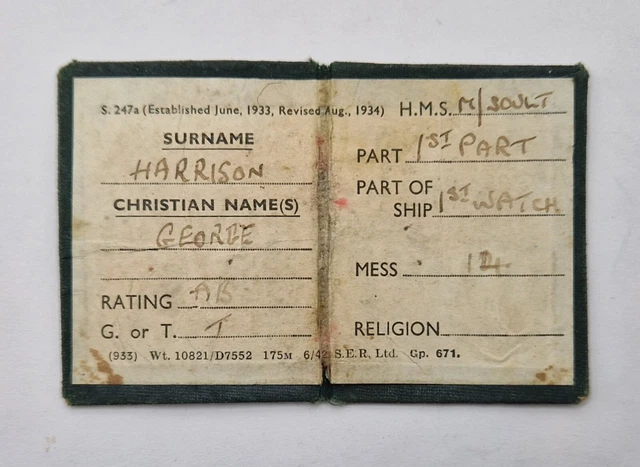 S. 247a (Established June, 1933, Revised Aug., 1934)
SURNAME
HARRISON
CHRISTIAN NAME(S)
GEORGE
RATING AB
G. or T. T
(933) Wt. 10821/D7552 175M 6/42 S.E.R. Ltd. Gp. 671.
H.M.S. M/SOULT
PART 1ST PART
PART OF
SHIP 1ST WATCH
MESS 12
RELIGION